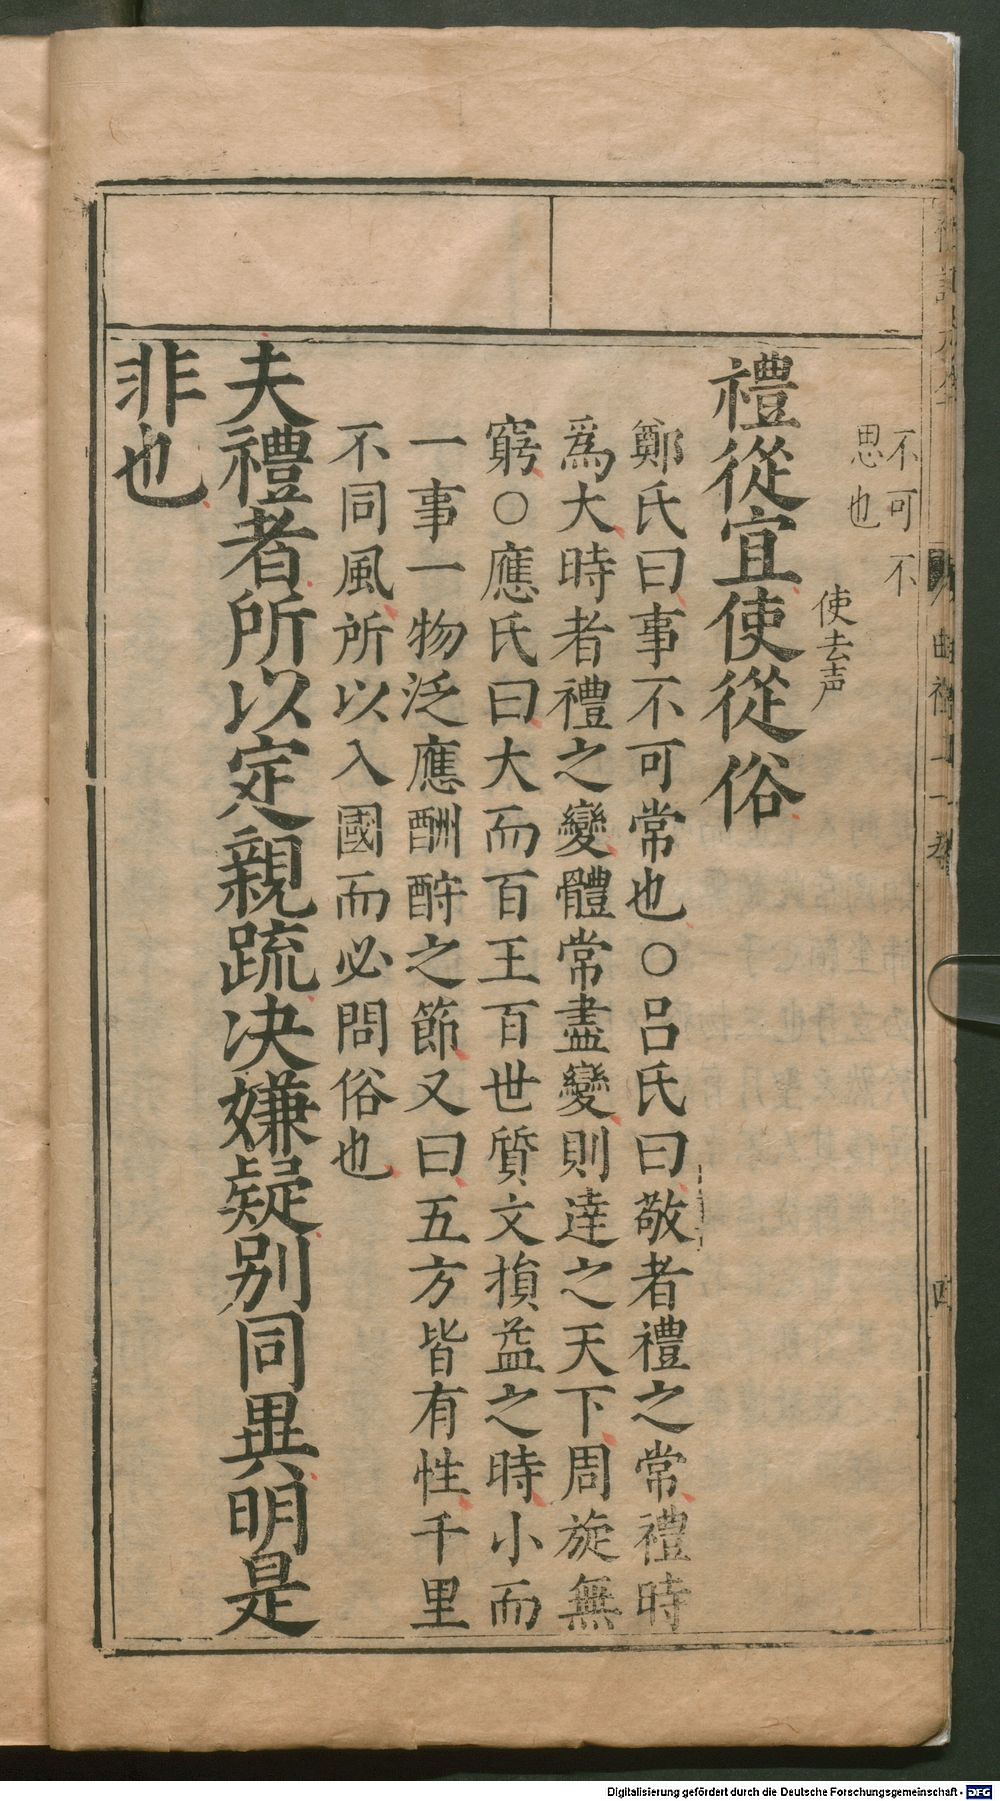 不可不
思也
使去声
禮從宜使從俗
鄭氏曰事不可常也○呂氏曰敬者禮之常禮時
爲大時者禮之變體常盡變則達之天下周旋無
窮○應氏曰大而百王百世質文損益之時小而
一事一物泛應酬酢之節又曰五方皆有性千里
不同風所以入國而必問俗也
夫禮者所以定親疏决嫌疑别同異明是
非也
Digitalisierung gefördert durch die Deutsche Forschungsgemeinschaft - DFG